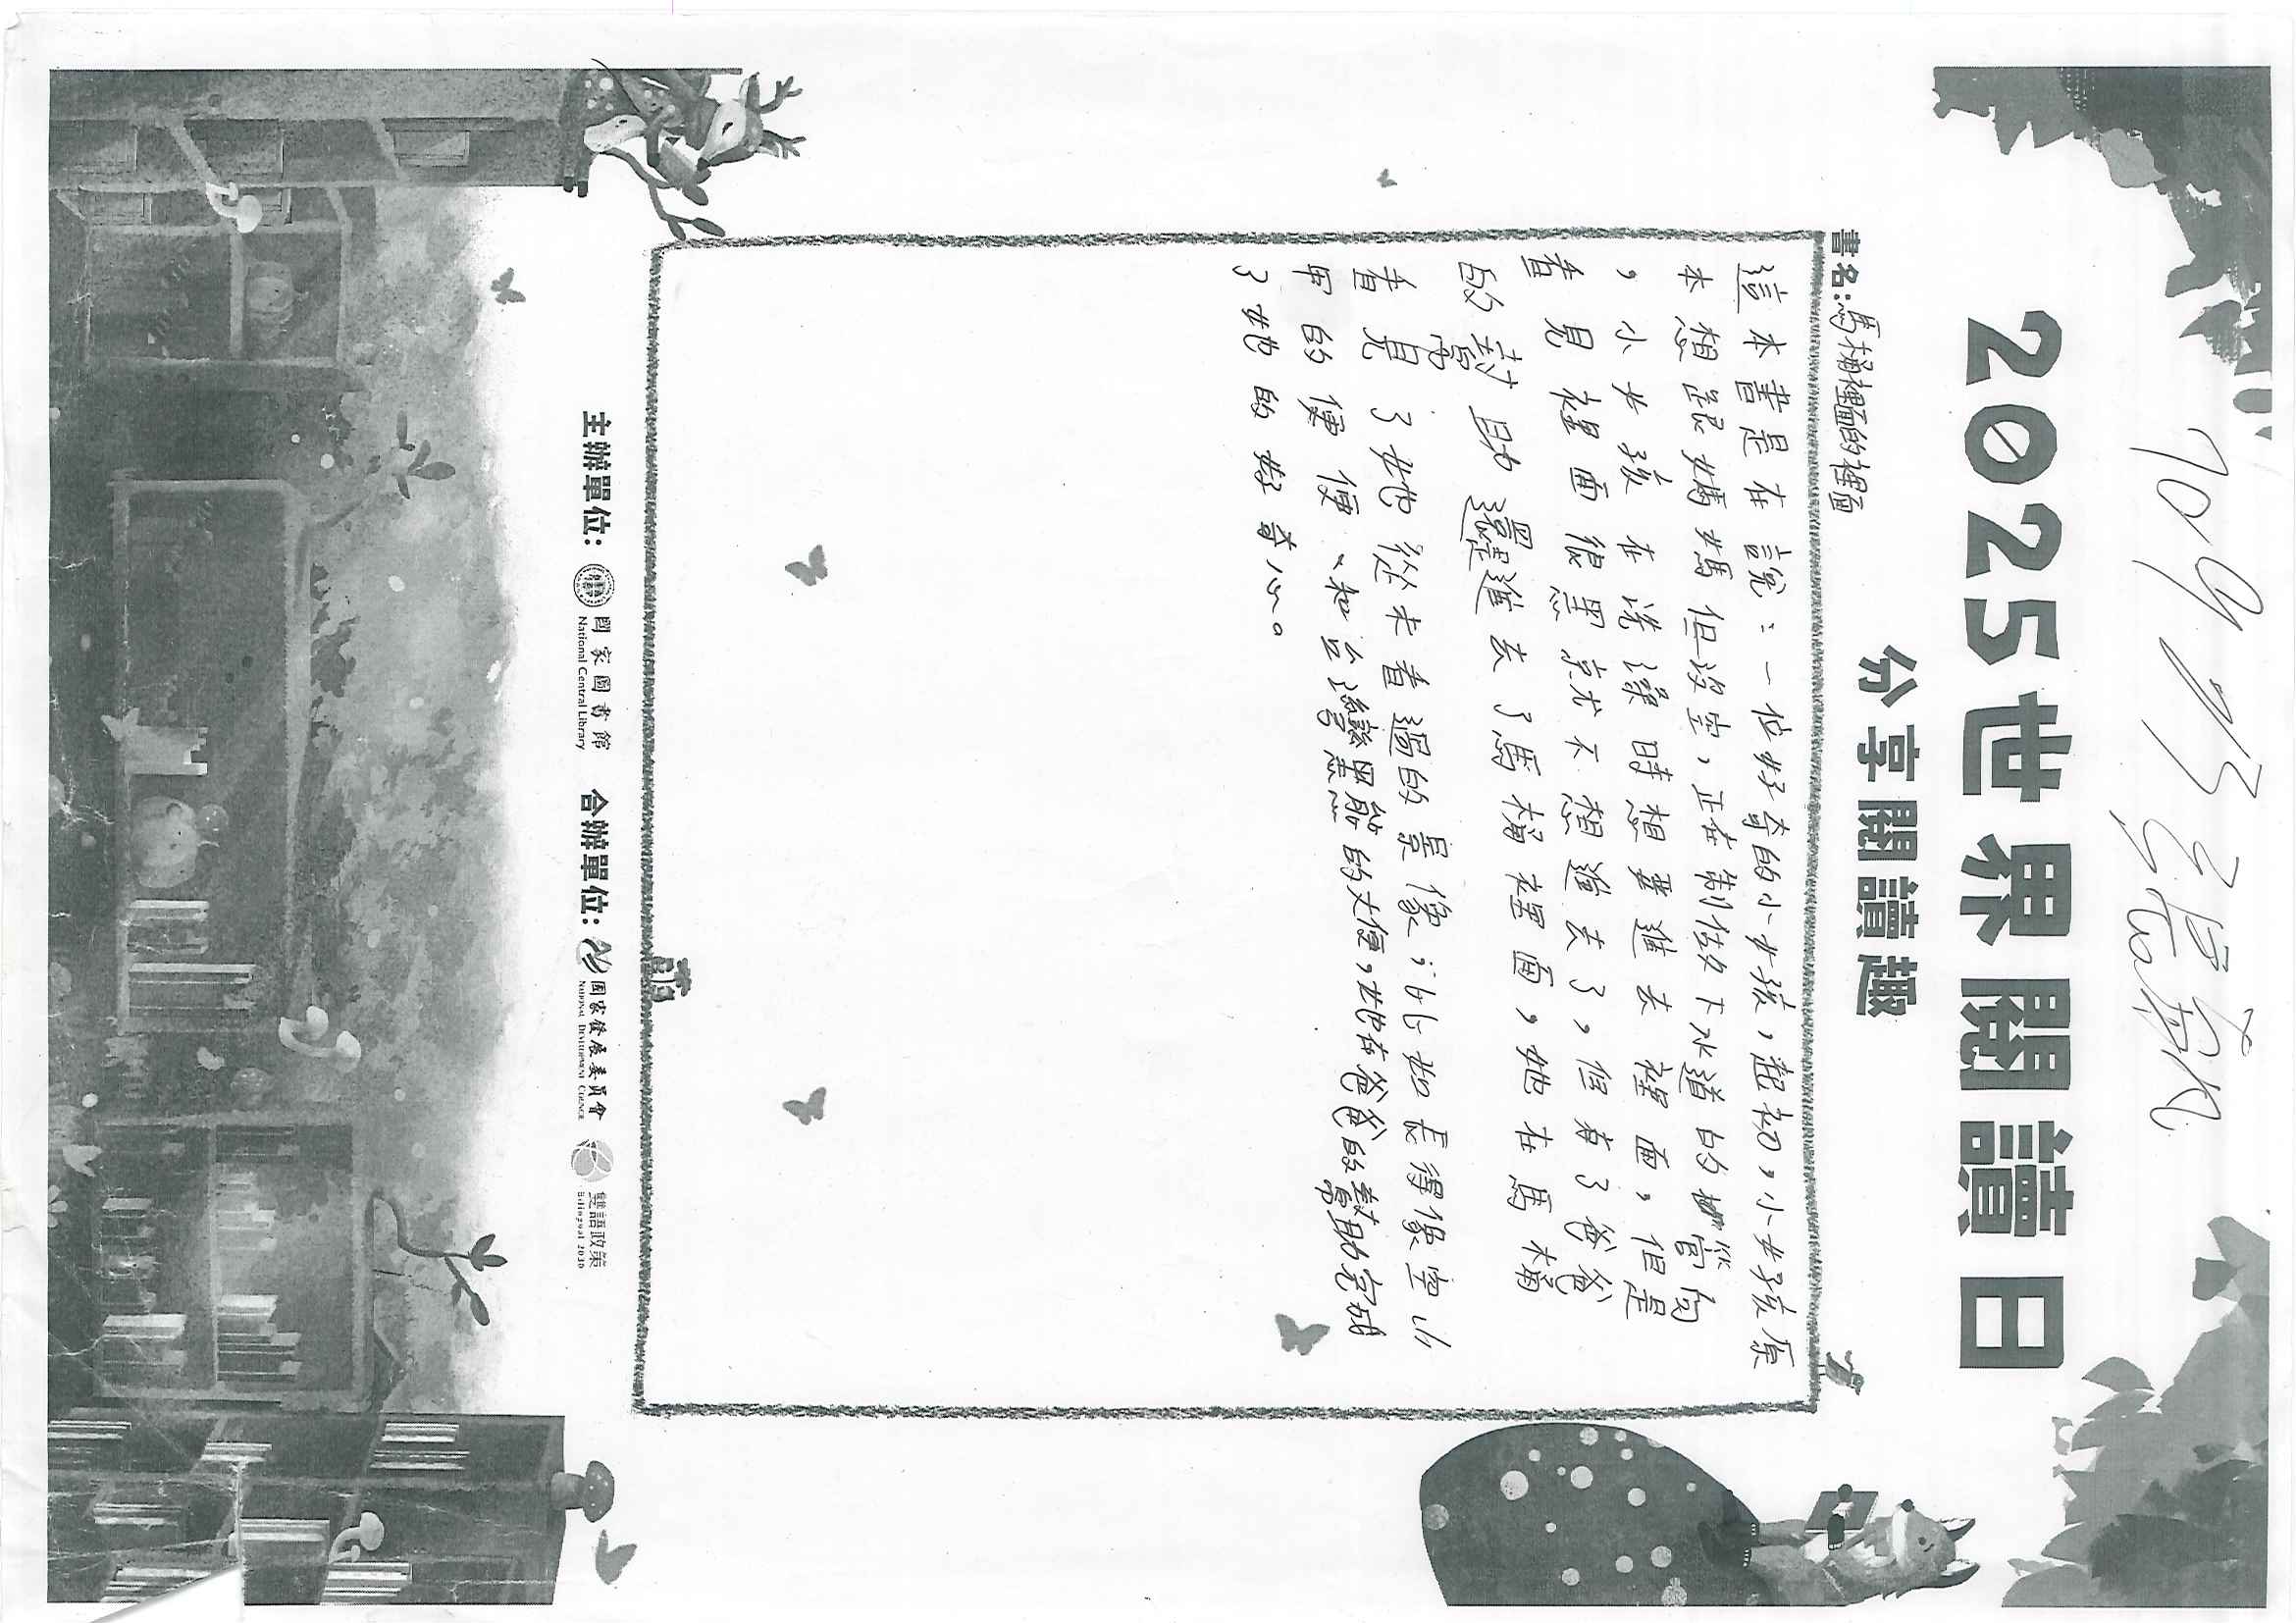 2025世界閱讀日
分享閱讀趣
書名:馬桶裡面的裡面
這本書是在說:一位好奇的小女孩,起初,小女孩原
本想跟媽媽但沒空,正在制作下水道的管向
,小女孩在洗澡時想要進去裡面,但是
看見裡面很黑就不想進去了,但有了爸爸
的幫助還是進去了馬桶裡面,她在馬桶
看見了她從未看過的景像;比如長得像空山
甲的便便、和台灣黑熊的大便,她在爸爸的幫助完成
了她的好奇心。
主辦單位: 國家圖書館 National Central Library 合辦單位: 國家發展委員會 National Development Council 雙語政策 Bilingual 2030